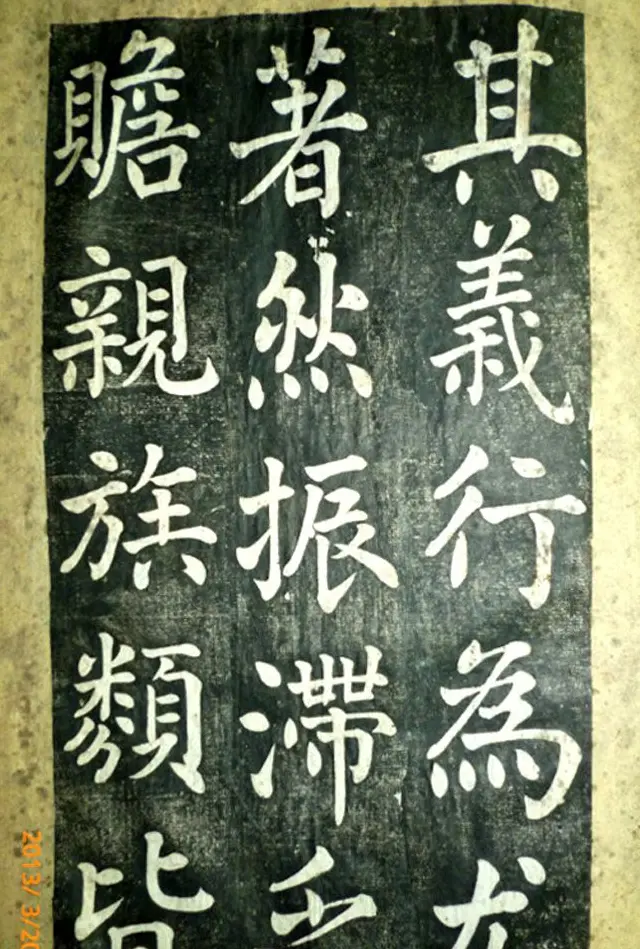 其義行為尤
著然振滯乏
贍親族類皆
2013/3/20